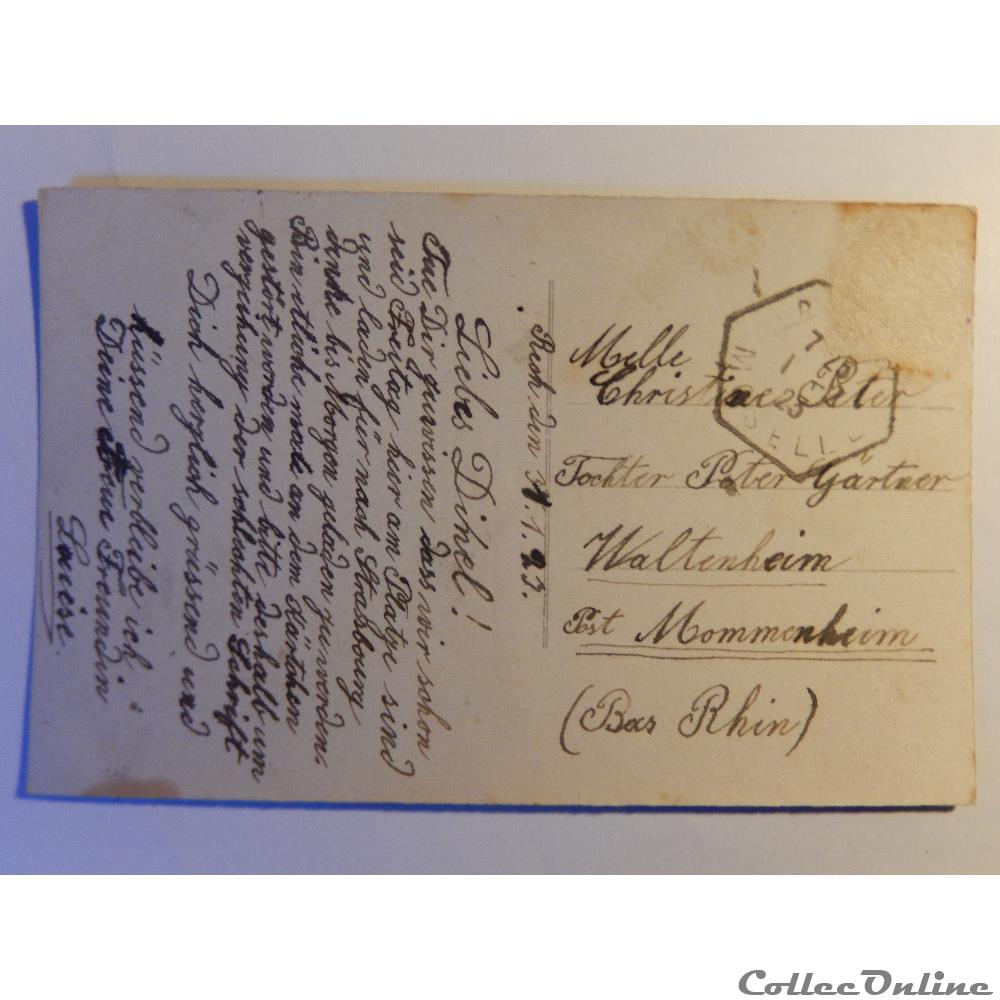 Rech. den 31.1.23.
Liebes Dinel!
Tue Dir zuwissen dass wir schon
seid Freitag hier am Platze sind
und laden für nach Strasbourg
denke bis Morgen gladen zu werden.
Bin etliche male an dem Kärtchen
gestört worden und bitte deshalb um
verzeihung der schlechten Schrift
Dich herzlich grüssend und
küssend verbleibe ich
Deine treue Freundin
Luise.
Melle
Christine Peter
Tochter Peter Gärtner
Waltenheim
Post Mommenheim
(Bas Rhin)
CollecOnline